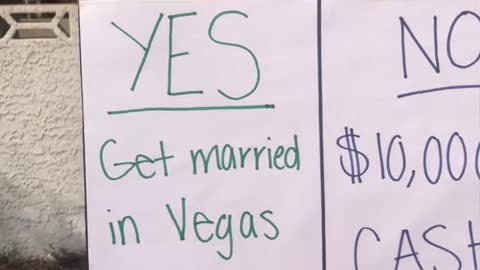 YES
Get married
in Vegas
NO
$10,000
CASH